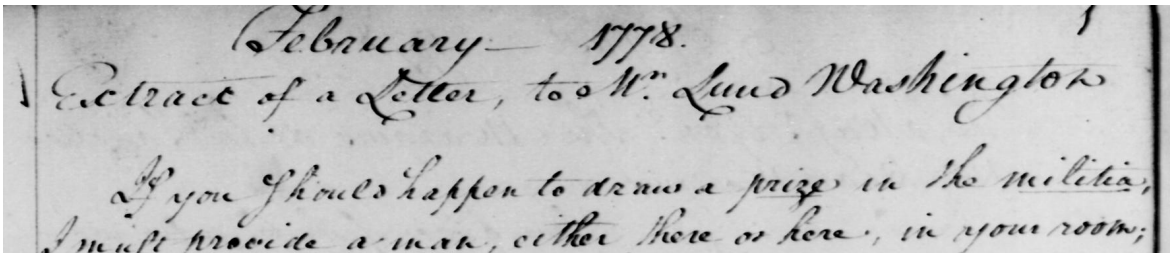 February — 1778.
Extract of a Letter, to Mr. Lund Washington
If you should happen to draw a prize in the militia,
I must provide a man, either there or here, in your room;